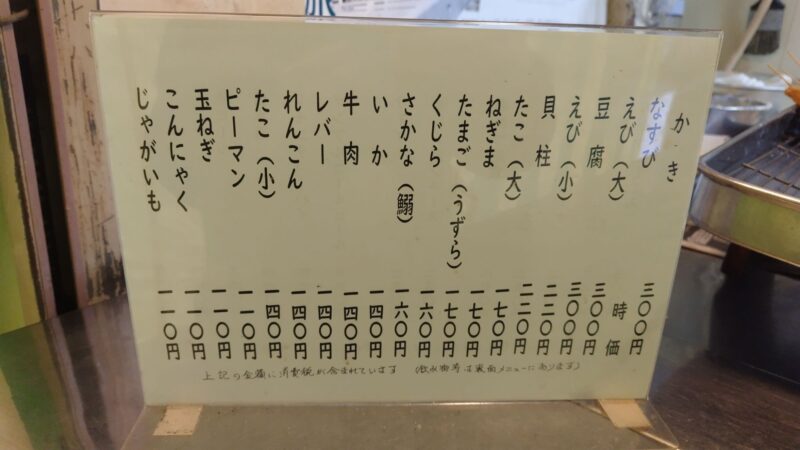 かき 三〇〇円
なすび 時価
えび（大） 三〇〇円
豆腐 三〇〇円
えび（小） 二二〇円
貝柱 二二〇円
たこ（大） 一七〇円
ねぎま 一七〇円
たまご（うずら） 一七〇円
くじら 一六〇円
さかな（鰯） 一六〇円
いか 一四〇円
牛肉 一四〇円
レバー 一四〇円
れんこん 一四〇円
たこ（小） 一四〇円
ピーマン 一一〇円
玉ねぎ 一一〇円
こんにゃく 一一〇円
じゃがいも 一一〇円
上記の金額に消費税が含まれています （飲み物等は裏面メニューにあります）